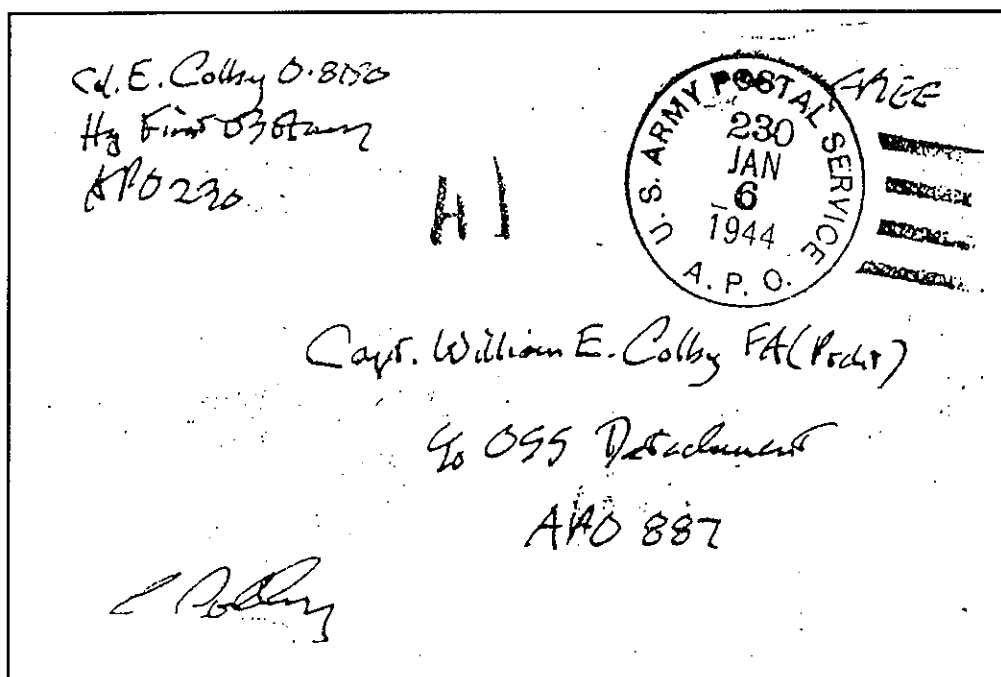 Col. E. Colby O.8150
Hq First US Army
APO 230
FREE
U.S. ARMY POSTAL SERVICE
230
JAN
6
1944
A.P.O.
Capt. William E. Colby FA (Prcht)
c/o OSS Detachment
APO 887
E Colby